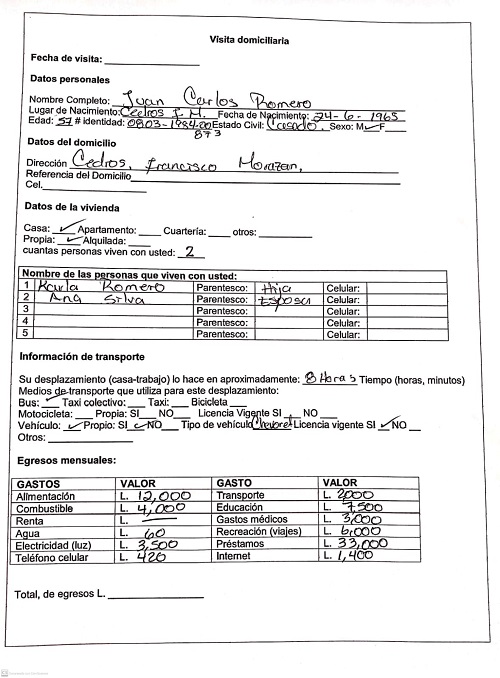 Visita domiciliaria
Fecha de visita:
Datos personales
Nombre Completo: Juan Carlos Romero
Lugar de Nacimiento: Cedros F.M. Fecha de Nacimiento: 24-6-1965
Edad: 57 # identidad: 0803-1984-00 Estado Civil: Casado. Sexo: M ✓ F
873
Datos del domicilio
Dirección Cedros, Francisco Morazan,
Referencia del Domicilio
Cel.
Datos de la vivienda
Casa: ✓ Apartamento: Cuartería: otros:
Propia: ✓ Alquilada:
cuantas personas viven con usted: 2
Nombre de las personas que viven con usted:
1 Karla Romero Parentesco: Hija Celular:
2 Ana Silva Parentesco: Esposa Celular:
3 Parentesco: Celular:
4 Parentesco: Celular:
5 Parentesco: Celular:
Información de transporte
Su desplazamiento (casa-trabajo) lo hace en aproximadamente: 8 Horas Tiempo (horas, minutos)
Medios de transporte que utiliza para este desplazamiento:
Bus: ✓ Taxi colectivo: Taxi: Bicicleta
Motocicleta: Propia: SI NO Licencia Vigente SI NO
Vehículo: ✓ Propio: SI ✓ NO Tipo de vehículo Licencia vigente SI ✓ NO
Otros:
Egresos mensuales:
GASTOS VALOR GASTO VALOR
Alimentación L. 12,000 Transporte L. 2000
Combustible L. 4,000 Educación L. 7,500
Renta L. — Gastos médicos L. 3,000
Agua L. 60 Recreación (viajes) L. 6,000
Electricidad (luz) L. 3,500 Préstamos L. 33,000
Teléfono celular L. 420 Internet L. 1,400
Total, de egresos L.